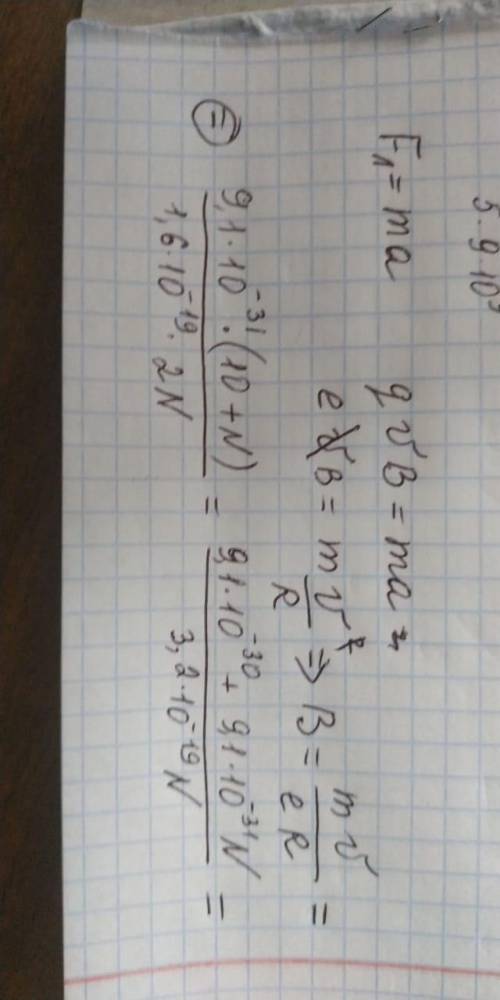 5·9·10⁹
F₁ = ma qvB = maₙ
evB = m v²/R ⇒ B = mv/eR =
⊜ 9,1·10⁻³¹·(10+N) / 1,6·10⁻¹⁹·2N = 9,1·10⁻³⁰ + 9,1·10⁻³¹N / 3,2·10⁻¹⁹N =